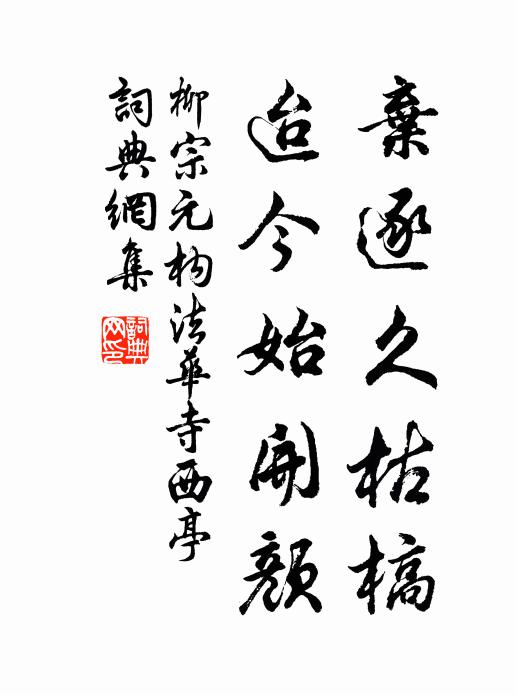 棄逐久枯槁
迨今始開顏
柳宗元构法華寺西亭
詞典網集
詞典
网印